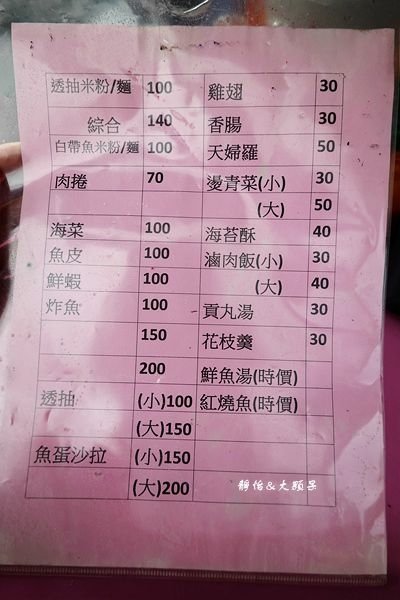 透抽米粉/麵 100 雞翅 30
綜合 140 香腸 30
白帶魚米粉/麵 100 天婦羅 50
肉捲 70 燙青菜(小) 30
(大) 50
海菜 100 海苔酥 40
魚皮 100 滷肉飯(小) 30
鮮蝦 100 (大) 40
炸魚 100 貢丸湯 30
150 花枝羹 30
200 鮮魚湯(時價)
透抽 (小)100 紅燒魚(時價)
(大)150
魚蛋沙拉 (小)150
(大)200
靜怡&大顆呆